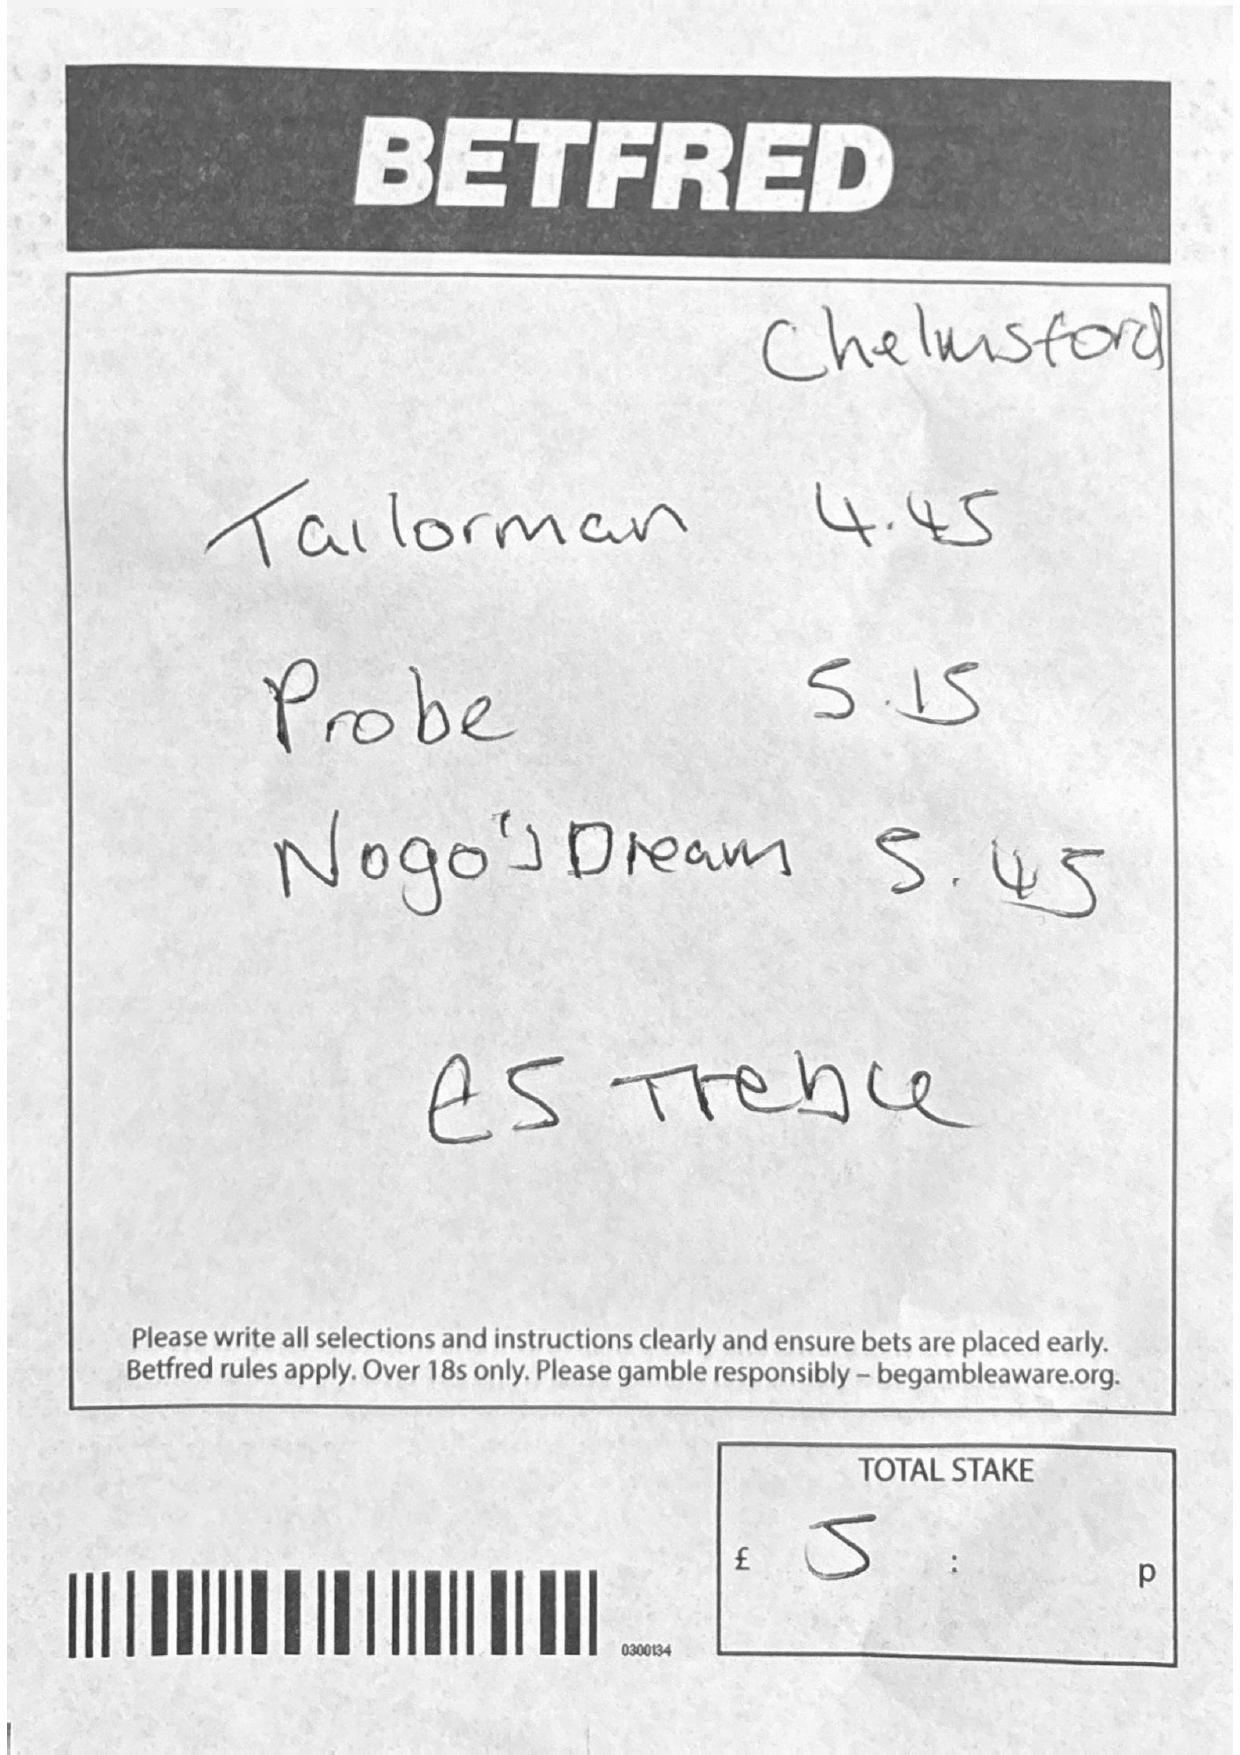 BETFRED
Chelmsford
Tailorman 4.45
Probe 5.15
Nogo's Dream 5.45
£5 Treble
Please write all selections and instructions clearly and ensure bets are placed early.
Betfred rules apply. Over 18s only. Please gamble responsibly – begambleaware.org.
TOTAL STAKE
£ 5 : p
0300134